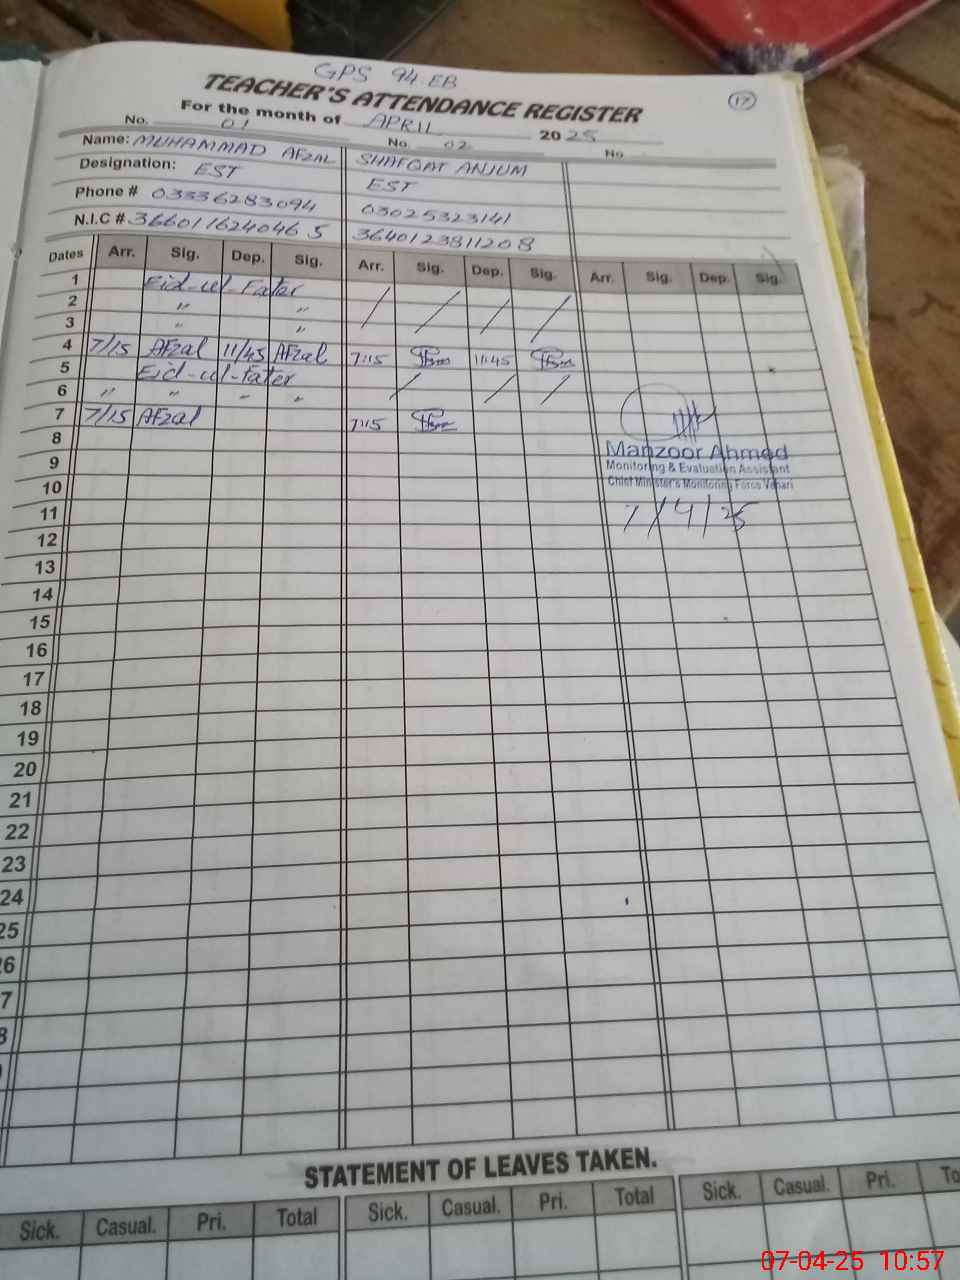 GPS 94 EB
TEACHER'S ATTENDANCE REGISTER
17
For the month of APRIL 2025
No. 01 No. 02 No.
Name: MUHAMMAD AFZAL SHAFQAT ANJUM
Designation: EST EST
Phone # 03336283094 03025323141
N.I.C # 3660116240465 3640123811208
Dates Arr. Sig. Dep. Sig. Arr. Sig. Dep. Sig. Arr. Sig. Dep. Sig.
1 Eid-ul-Fater
2 " "
3 " "
4 7/15 Afzal 11/45 Afzal 7:15 11:45
5 Eid-ul-Fater
6 " " " "
7 7/15 Afzal 7:15
8
Manzoor Ahmed
9
Monitoring & Evaluation Assistant
10
Chief Minister's Monitoring Force Vehari
11
7/4/25
12
13
14
15
16
17
18
19
20
21
22
23
24
25
26
7
8
STATEMENT OF LEAVES TAKEN.
Sick. Casual. Pri. Total Sick. Casual. Pri. Total Sick. Casual. Pri. To
07-04-25 10:57